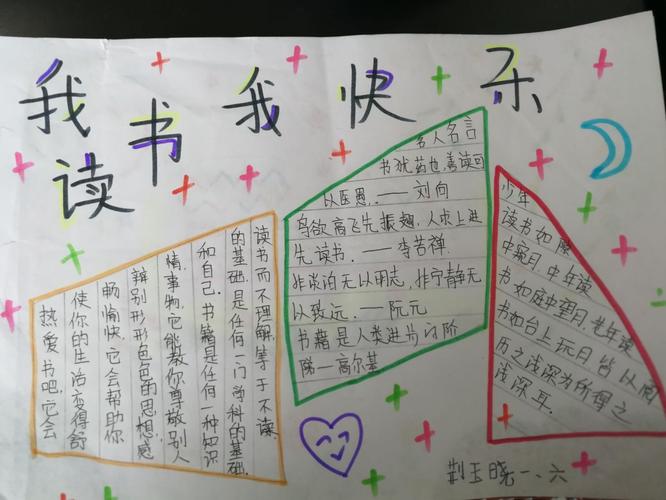 我读书我快乐
名人名言
书犹药也,善读可
以医愚.——刘向
鸟欲高飞先振翅,人求上进
先读书.——李苦禅
非淡泊无以明志,非宁静无
以致远.——阮元
书籍是人类进步的阶
梯—高尔基
少年
读书如隙
中窥月.中年读
书如庭中望月.老年读
书如台上玩月皆以阅
历之浅深为所得之
浅深耳.
读书而不理解,等于不读
的基础.是任何一门学科的基础.
和自己.书籍是任何一种知识
情,事物,它能教你尊敬别人
辩别形形色色的思想,感
畅愉快,它会帮助你
使你的生活变得舒
热爱书吧,它会
荆玉晓一、六